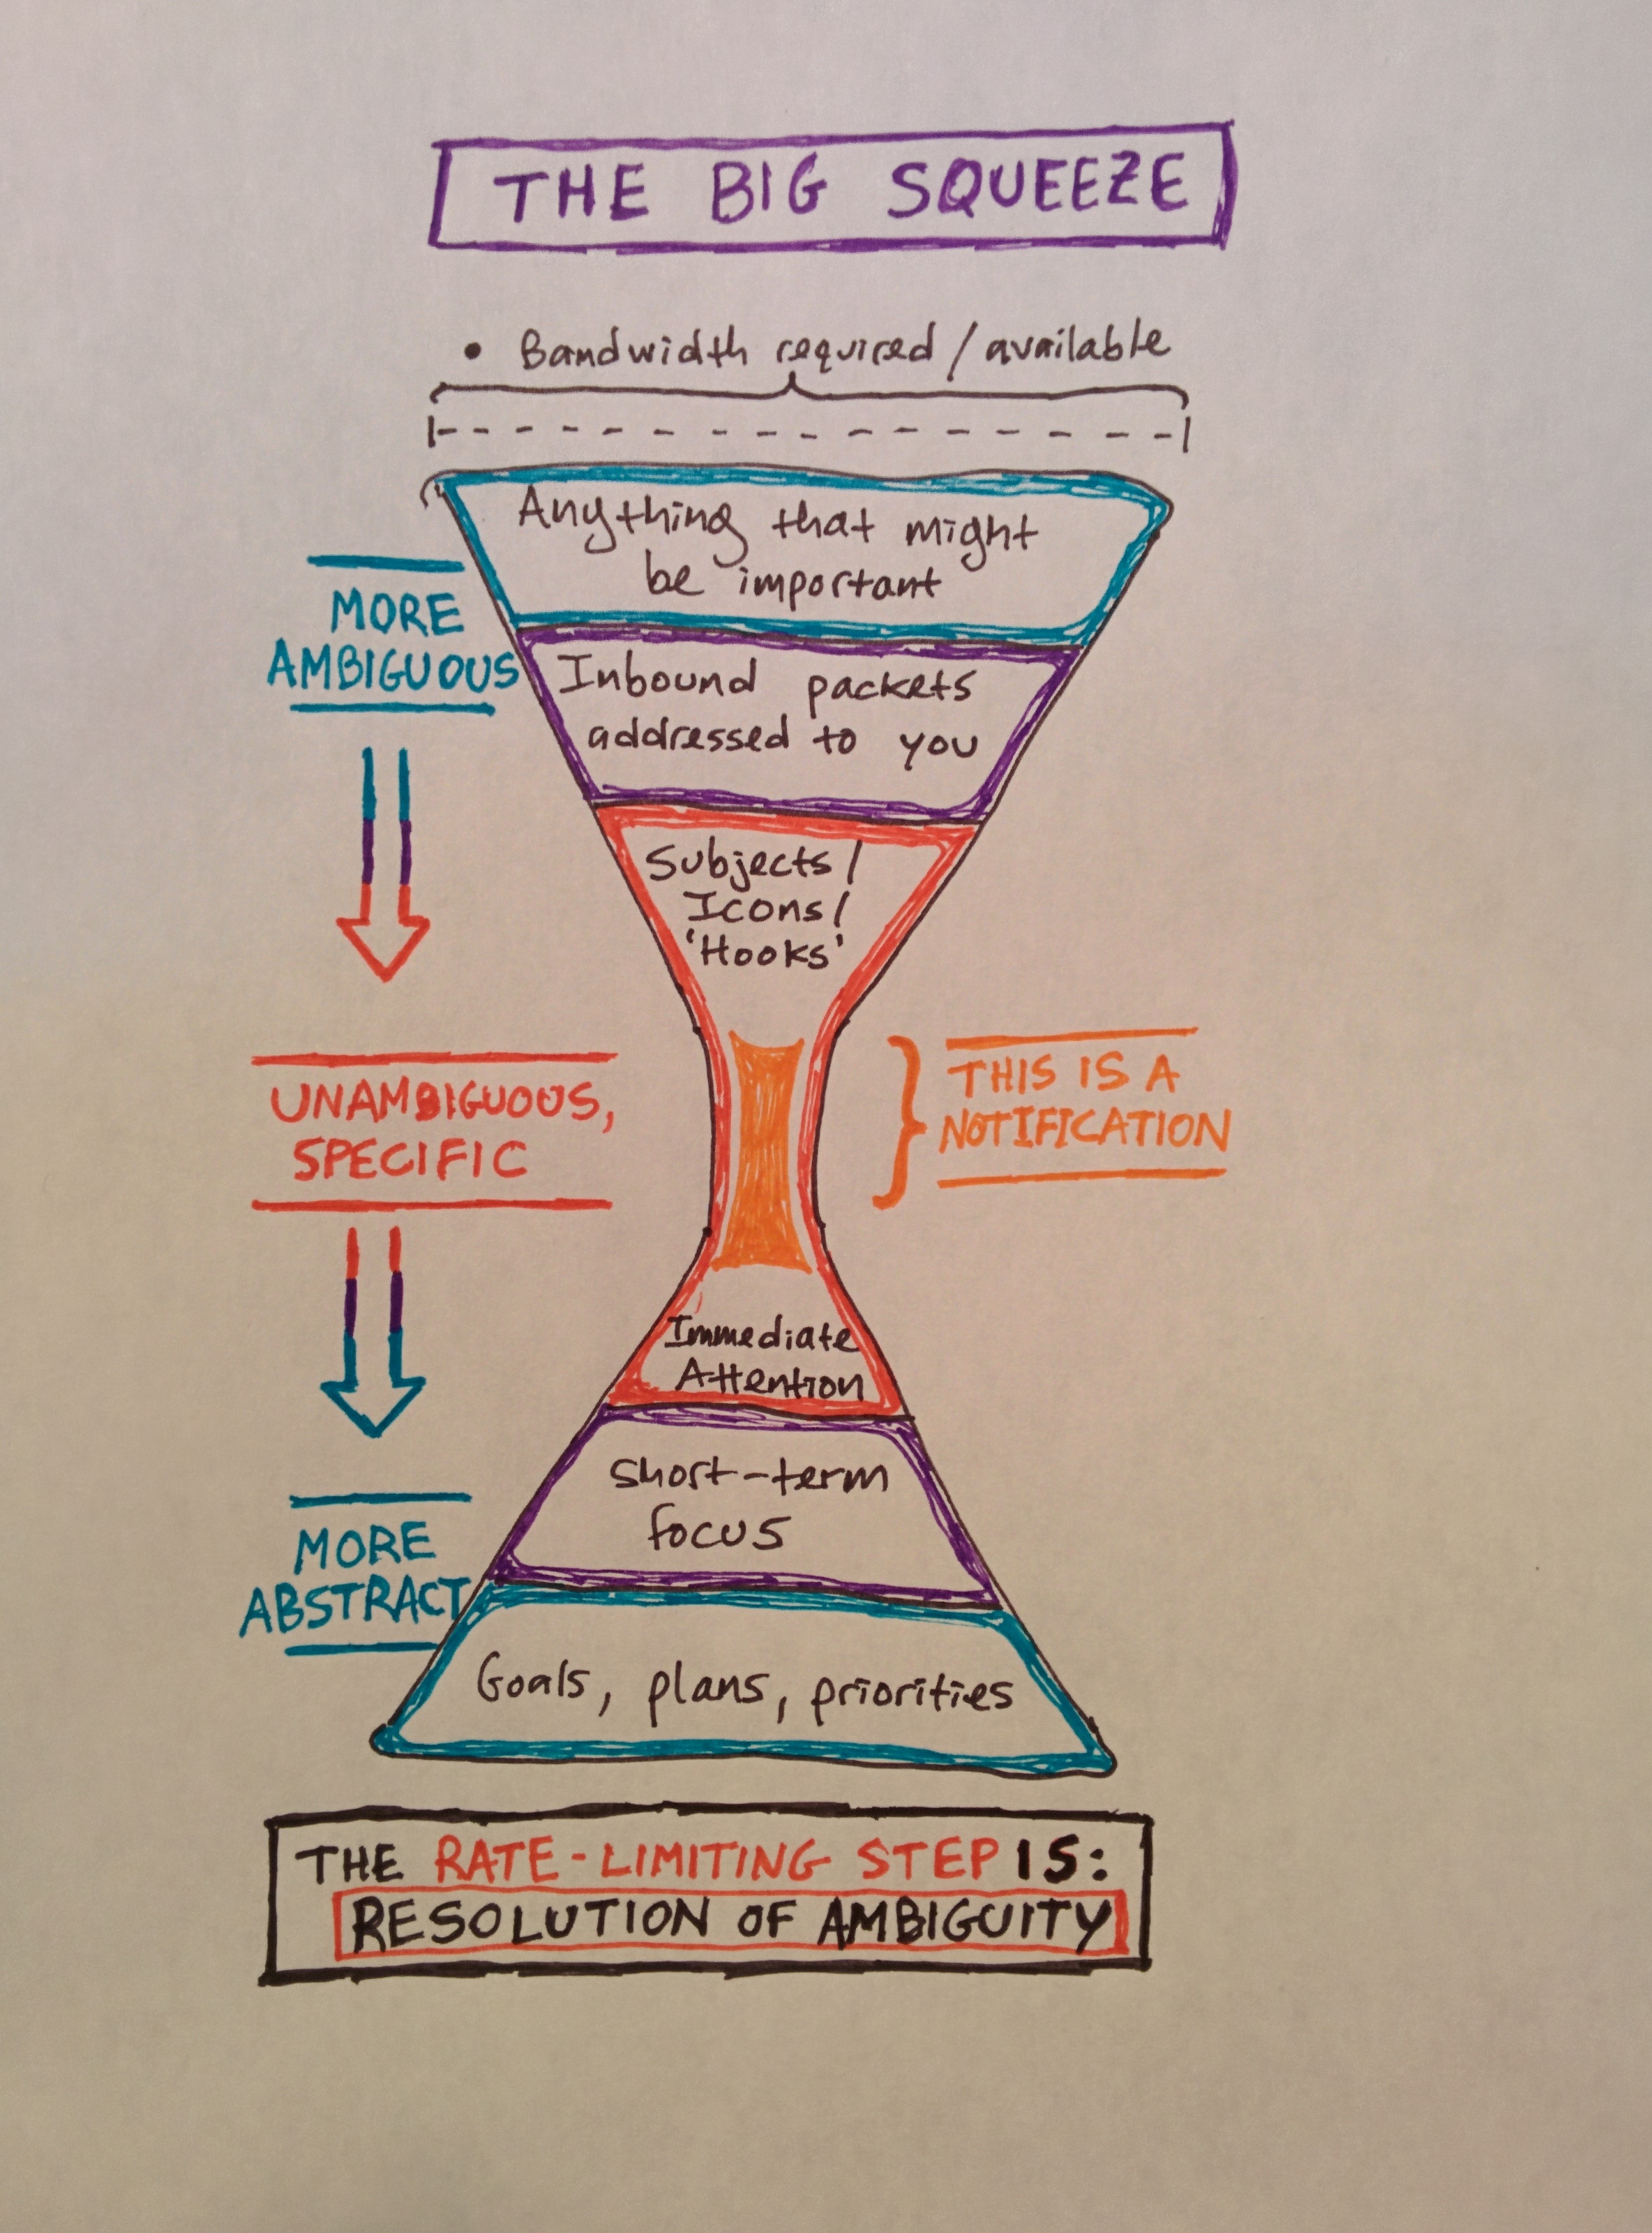 THE BIG SQUEEZE
• Bandwidth required / available
Anything that might
be important
MORE
AMBIGUOUS
Inbound packets
addressed to you
Subjects /
Icons /
'Hooks'
UNAMBIGUOUS,
SPECIFIC
THIS IS A
NOTIFICATION
Immediate
Attention
Short-term
focus
MORE
ABSTRACT
Goals, plans, priorities
THE RATE-LIMITING STEP IS:
RESOLUTION OF AMBIGUITY